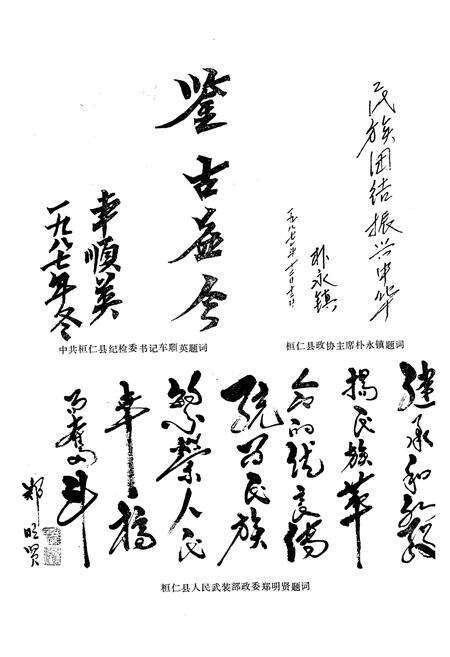 鉴古益今
車順英
一九八七年冬
中共桓仁县纪检委书记车顺英题词
民族团结振兴中华
朴永镇
一九八七年
桓仁县政协主席朴永镇题词
继承和发
揚民族革
命的优良傳
统为民族
繁荣人民
幸福
奮斗
郑明贤
桓仁县人民武装部政委郑明贤题词